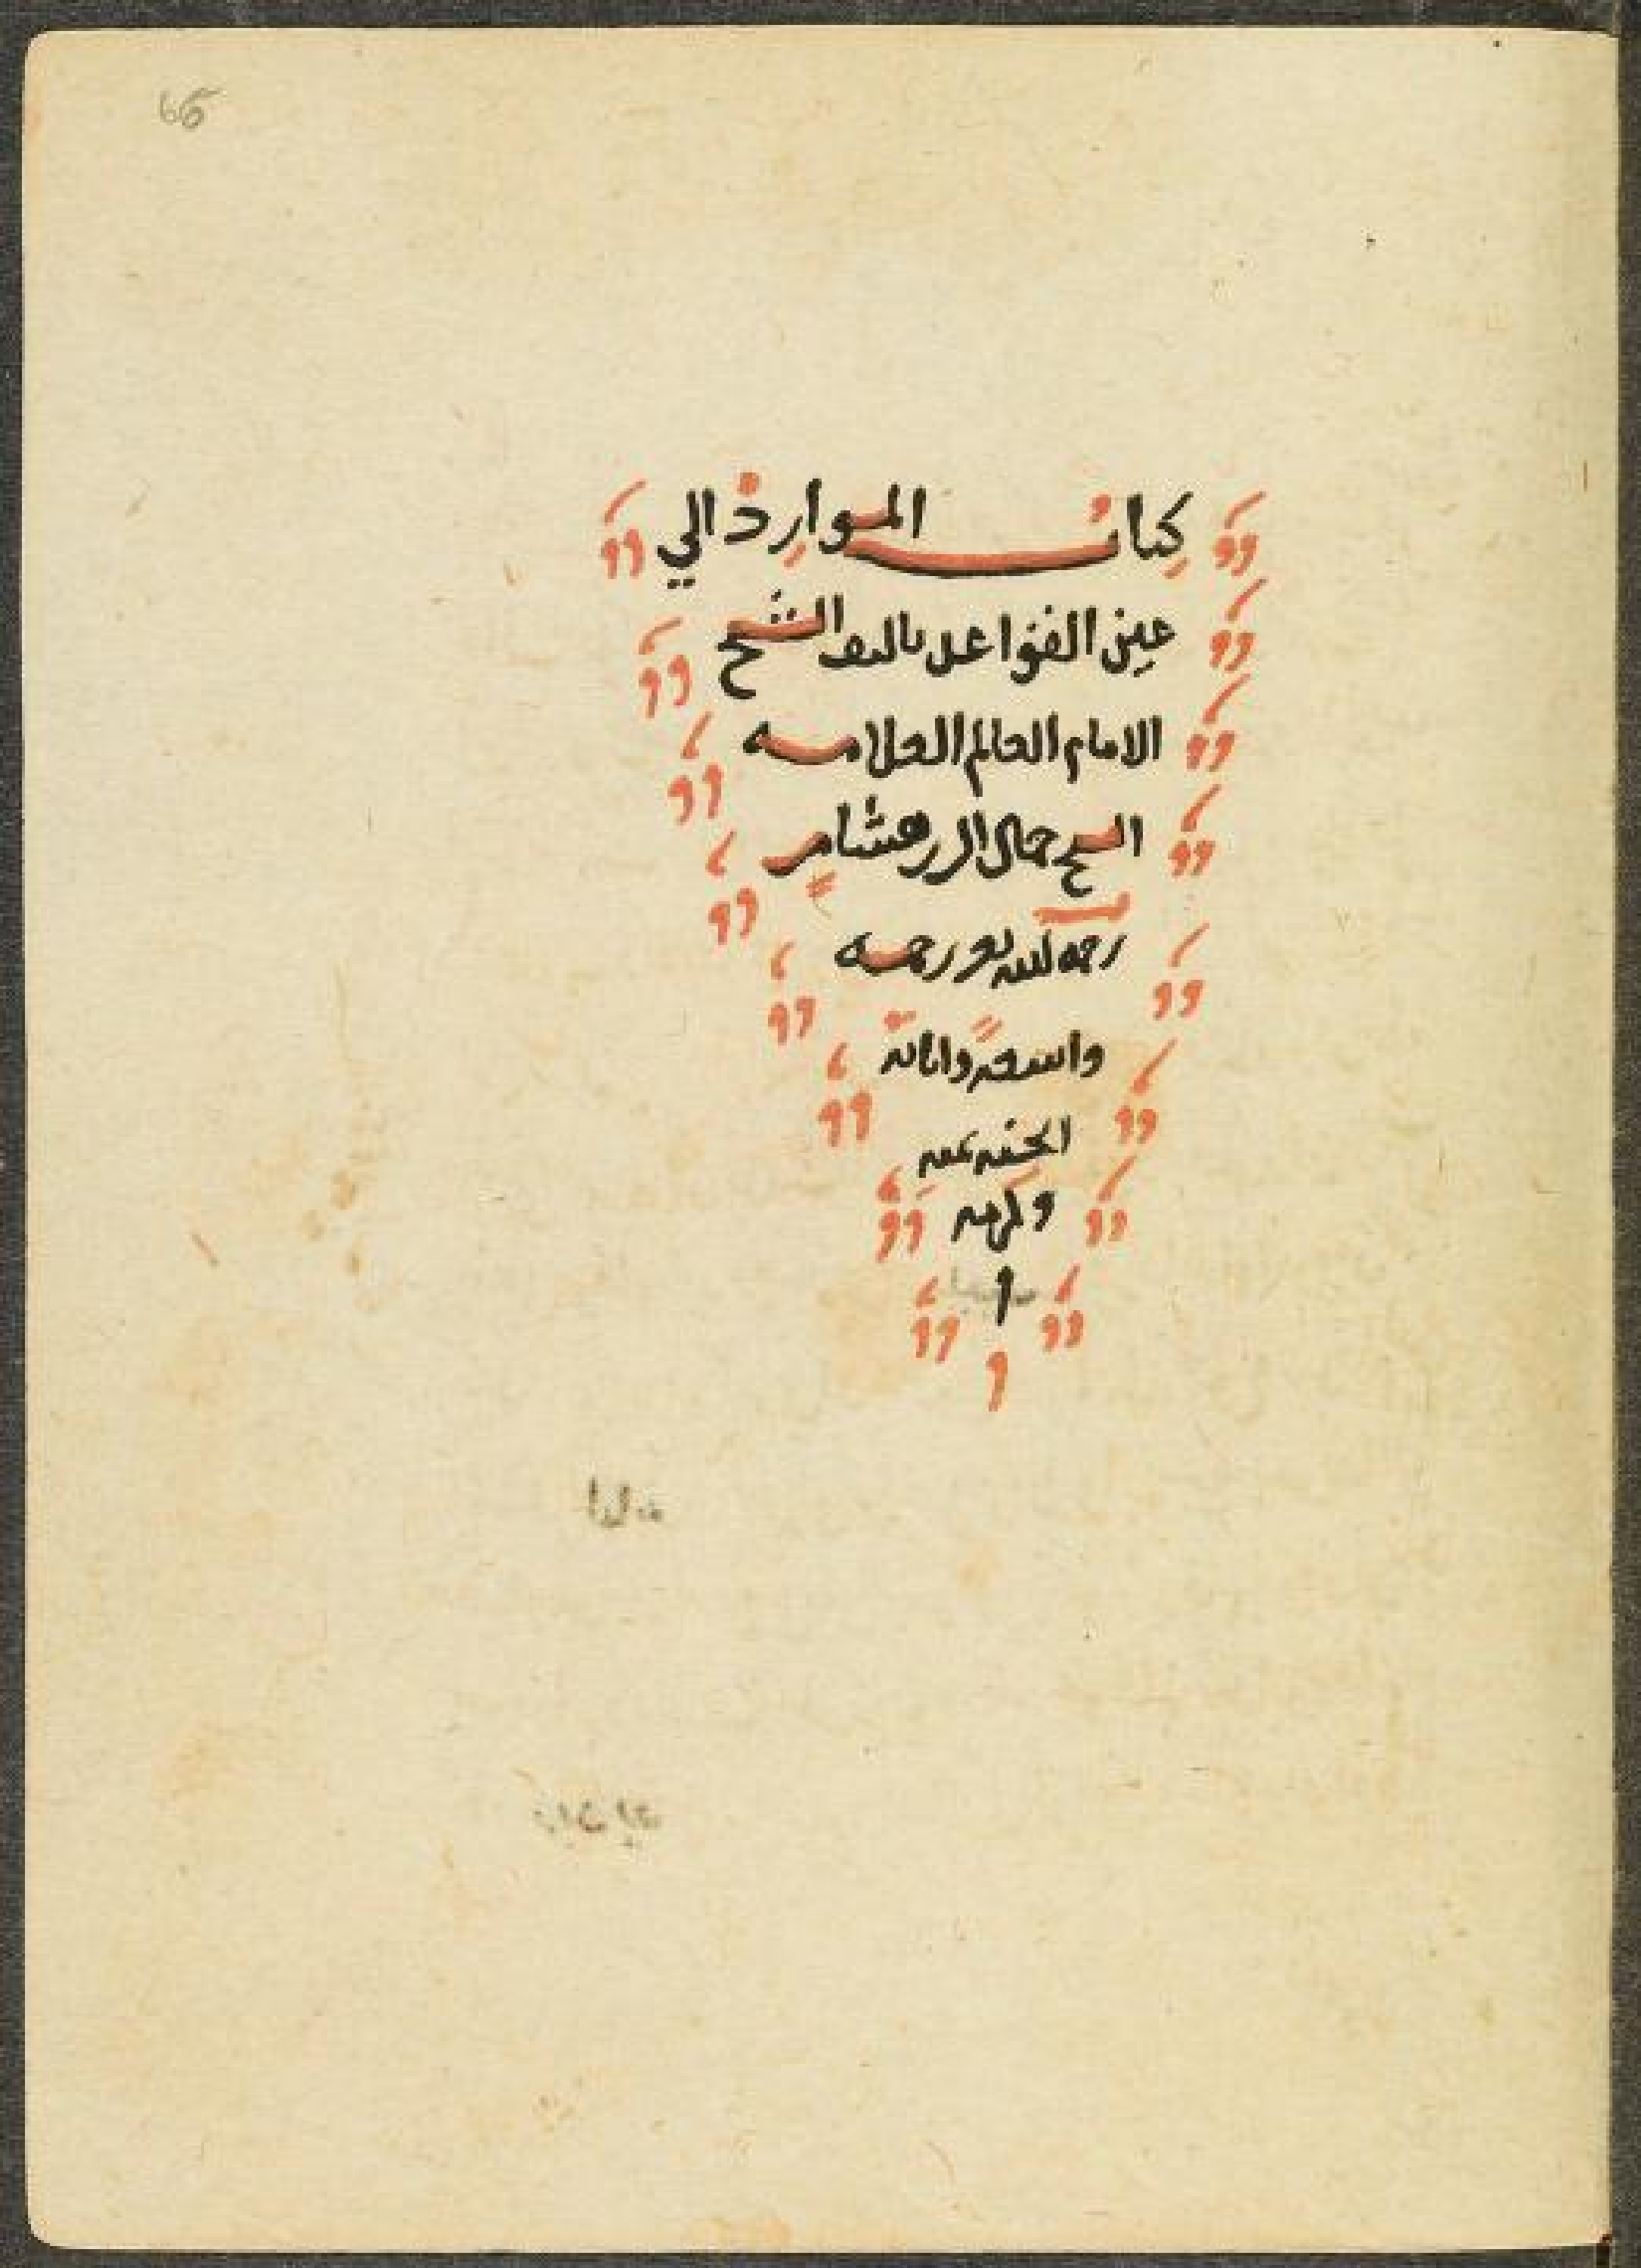 66
كتاب الموارد الي
عين القواعد تاليف الشيخ
الامام العالم العلامه
الشيخ جمال الدين هشام
رحمه الله تعالى ورحمه
واسعة واثابه
الجنه بمنه
وكرمه
ا